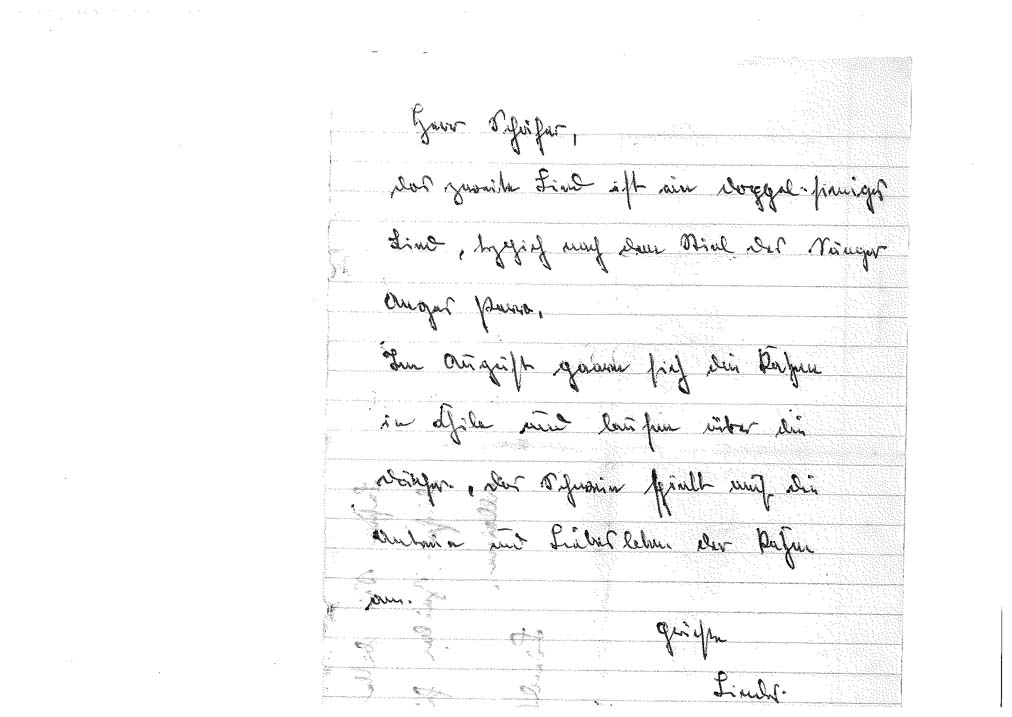 Herr Schäfer,
das zweite Lied ist ein doppel-sinniges
Lied, typisch nach dem Stiel des Sänger
Angel Parra.
Im August paaren sich die Katzen
in Chile und laufen über die
Dächer, das Schwein spielt auf die
Antonia und Liebesleben der Katzen
an.
Grüße
Linda.